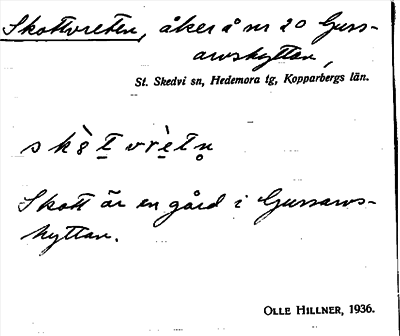 Skottvreten, åker å nr 20 Guss-
arvshyttan,
St. Skedvi sn, Hedemora tg, Kopparbergs län.
Skott är en gård i Gussarvs-
hyttan.
OLLE HILLNER, 1936.